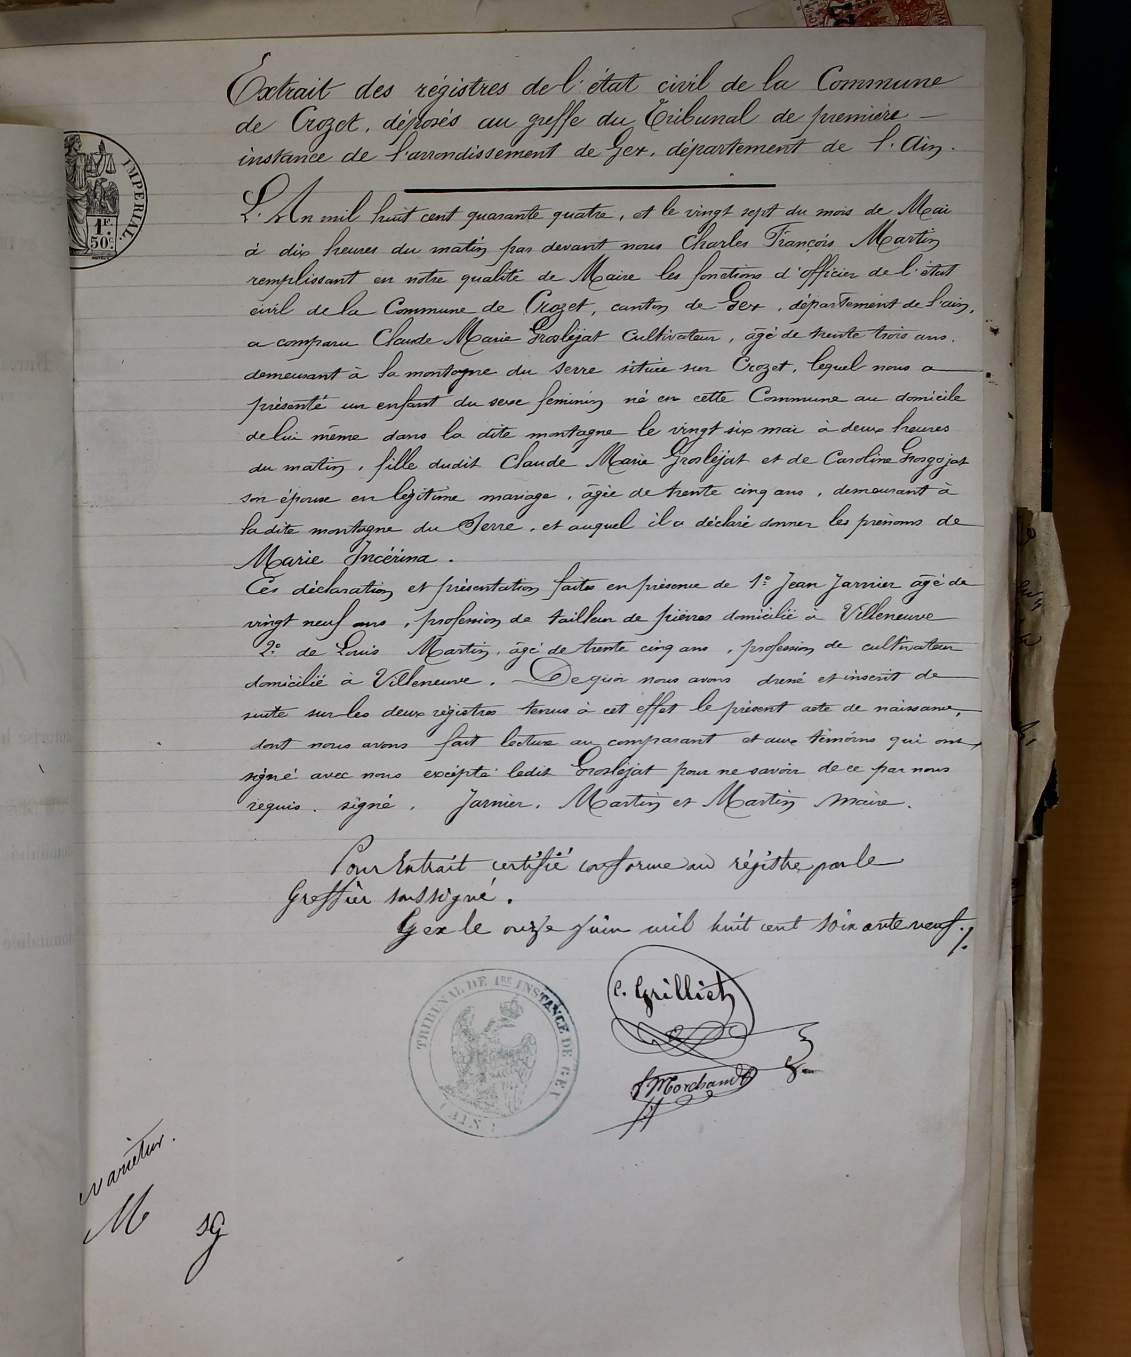 Extrait des régistres de l'état civil de la Commune
de Crozet, déposés au greffe du Tribunal de première
instance de l'arrondissement de Gex, département de l'Ain.
IMPERIAL.
1F.
50c.
L'An mil huit cent quarante quatre, et le vingt sept du mois de Mai
à dix heures du matin par devant nous Charles François Martin
remplissant en notre qualité de Maire les fonctions d'officier de l'état
civil de la Commune de Crozet, canton de Gex, département de l'ain,
a comparu Claude Marie Grosléjat Cultivateur, âgé de trente trois ans,
demeurant à la montagne du Serre située sur Crozet, lequel nous a
présenté un enfant du sexe feminin né en cette Commune au domicile
de lui même dans la dite montagne le vingt six mai à deux heures
du matin, fille dudit Claude Marie Grosléjat et de Caroline Grosgojat
son épouse en légitime mariage, âgée de trente cinq ans, demeurant à
la dite montagne du Serre, et auquel il a déclaré donner les prénoms de
Marie Incérina.
Ces déclaration et présentation faites en présence de 1º Jean Jarnier âgé de
vingt neuf ans, profession de tailleur de pièrres domicilié à Villeneuve
2º de Louis Martin, âgé de trente cinq ans, profession de cultivateur
domicilié à Villeneuve. De quoi nous avons dressé et inscrit de
suite sur les deux régistres tenus à cet effet le présent acte de naissance,
dont nous avons fait lecture au comparant et aux témoins qui ont
signé avec nous excépté ledit Grosléjat pour ne savoir de ce par nous
requis. signé. Jarnier, Martin et Martin Maire.
Pour Extrait certifié conforme au régistre par le
Greffier soussigné.
Gex le onze Juin mil huit cent soixante neuf./.
C. Grilliet
TRIBUNAL DE 1RE INSTANCE DE GEX
(AIN)
Marchand
varietur.
M
SG